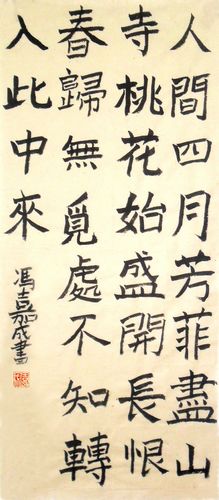 人間四月芳菲盡山
寺桃花始盛開長恨
春歸無覓處不知轉
入此中來
馮嘉成書